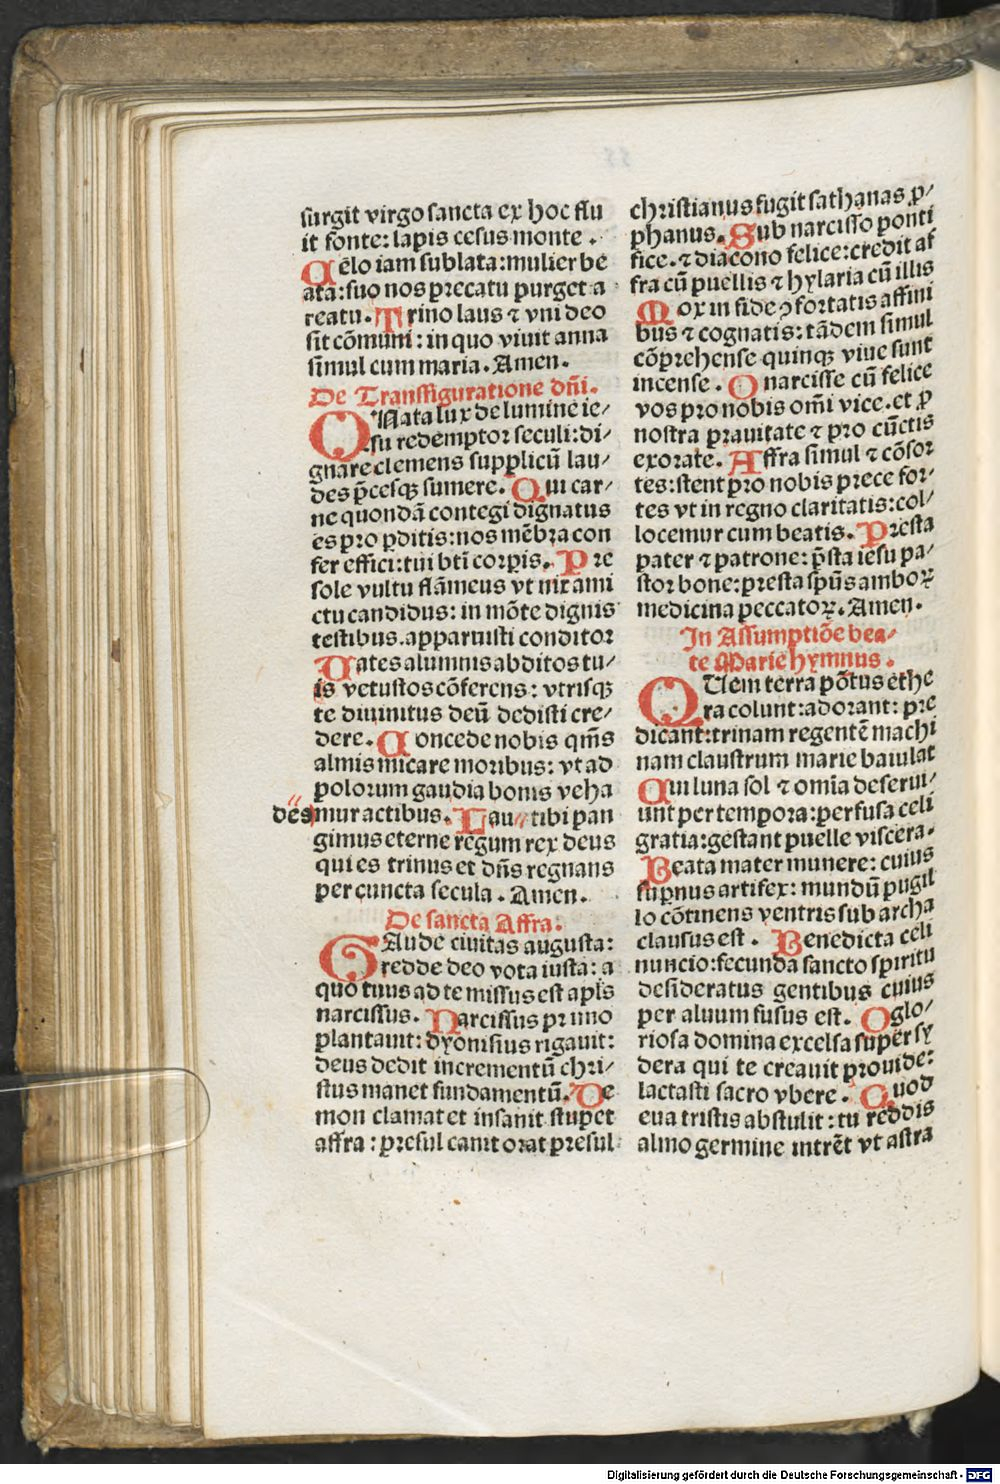 surgit virgo sancta ex hoc flu
it fonte: lapis cesus monte .
Celo iam sublata: mulier be
ata: suo nos precatu purget a
reatu. Trino laus ⁊ vni deo
sit cōmuni: in quo viuit anna
simul cum maria. Amen.
De Transfiguratione dn̄i.
O Nata lux de lumine ie/
su redemptor seculi: di-
gnare clemens supplicū lau/
des p̄cesqꝫ sumere. Qui car/
ne quondā contegi dignatus
es pro ꝑditis: nos mēbra con
fer effici: tui bti corꝑis. Pre
sole vultu flāmeus vt nix ami
ctu candidus: in mōte dignis
testibus. apparuisti conditor
Uates alumnis abditos tu/
is vetustos cōferens: vtrisqꝫ
te diuinitus deū dedisti cre/
dere. Concede nobis qm̄s
almis micare moribus: vt ad
polorum gaudia bonis veha
mur actibus. Lau〃 tibi pan
〃 dēs
gimus eterne regum rex deus
qui es trinus et dn̄s regnans
per cuncta secula . Amen.
De sancta Affra:
GAude ciuitas augusta:
redde deo vota iusta: a
quo tuus ad te missus est apl̄s
narcissus. Narcissus primo
plantauit: dyonisius rigauit:
deus dedit incrementū chri/
stus manet fundamentū. De
mon clamat et insanit stupet
affra: presul canit orat presul
christianus fugit sathanas ꝓ/
phanus. Sub narcisso ponti
fice. ⁊ diacono felice: credit af
fra cū puellis ⁊ hylaria cū illis
Mox in fide ꝯfortatis affini
bus ⁊ cognatis: tādem simul
cōprehense quinqꝫ viue sunt
incense . O narcisse cū felice
vos pro nobis om̄i vice. et ꝓ
nostra prauitate ⁊ pro cūctis
exorate. Affra simul ⁊ cōsor
tes: stent pro nobis prece for-
tes vt in regno claritatis: col/
locemur cum beatis. Presta
pater ⁊ patrone: p̄sta iesu pa/
stor bone: presta spūs amboꝝ
medicina peccatoꝝ. Amen.
In Assumptiōe bea-
te Marie hymnus .
QUem terra pōtus ethe
ra colunt: adorant: pre
dicant: trinam regentē machi
nam claustrum marie baiulat
Cui luna sol ⁊ omīa deserui/
unt per tempora: perfusa celi
gratia: gestant puelle viscera.
Beata mater munere: cuius
supnus artifex: mundū pugil
lo cōtinens ventris sub archa
clausus est . Benedicta celi
nuncio: fecunda sancto spiritu
desideratus gentibus cuius
per aluum fusus est. O glo/
riosa domina excelsa super sy
dera qui te creauit prouide:
lactasti sacro vbere . Quod
eua tristis abstulit: tu reddis
almo germine intrēt vt astra
Digitalisierung gefördert durch die Deutsche Forschungsgemeinschaft - DFG